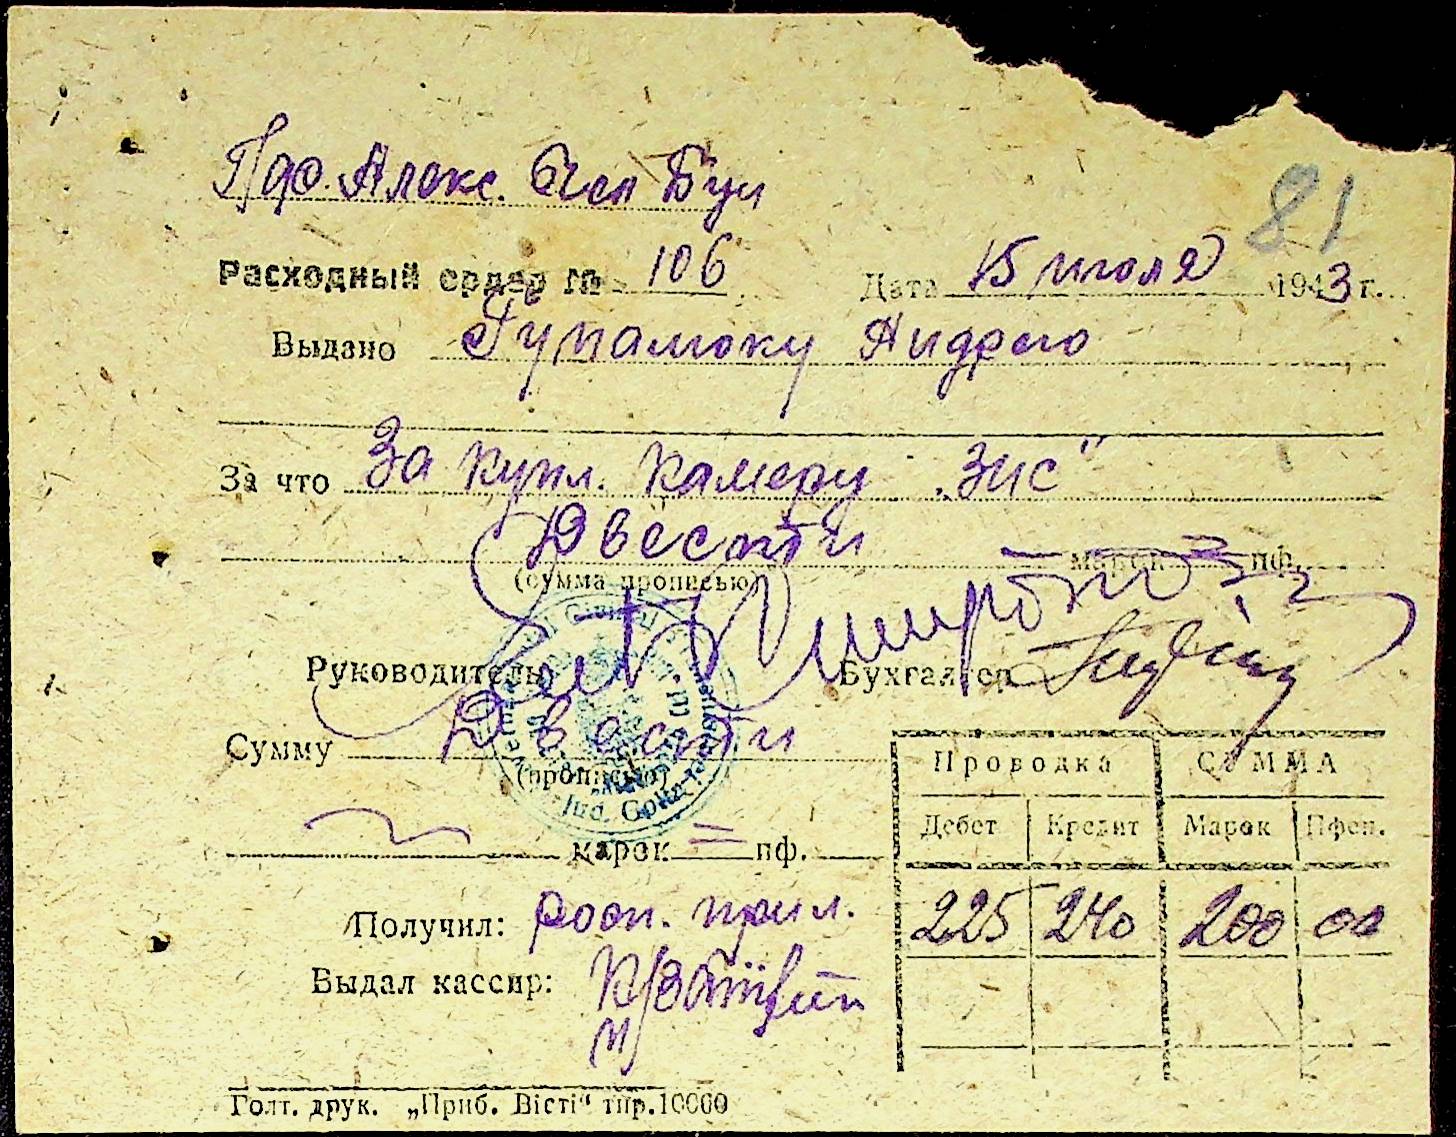 Алекс.
81
Расходный ордер № 106 Дата 15 июля 1943 г.
Выдано Андрею
За что За купл. камеру „ЗИС"
Двести марок = пф.
(сумма прописью)
Руководитель Бухгалтер
Сумму Двести
(прописью)
марок = пф.
Проводка СУММА
Дебет Кредит Марок Пфен.
225 240 200 00
Получил: росп. прил.
Выдал кассир:
Голт. друк. „Приб. Вісті“ тир.10000